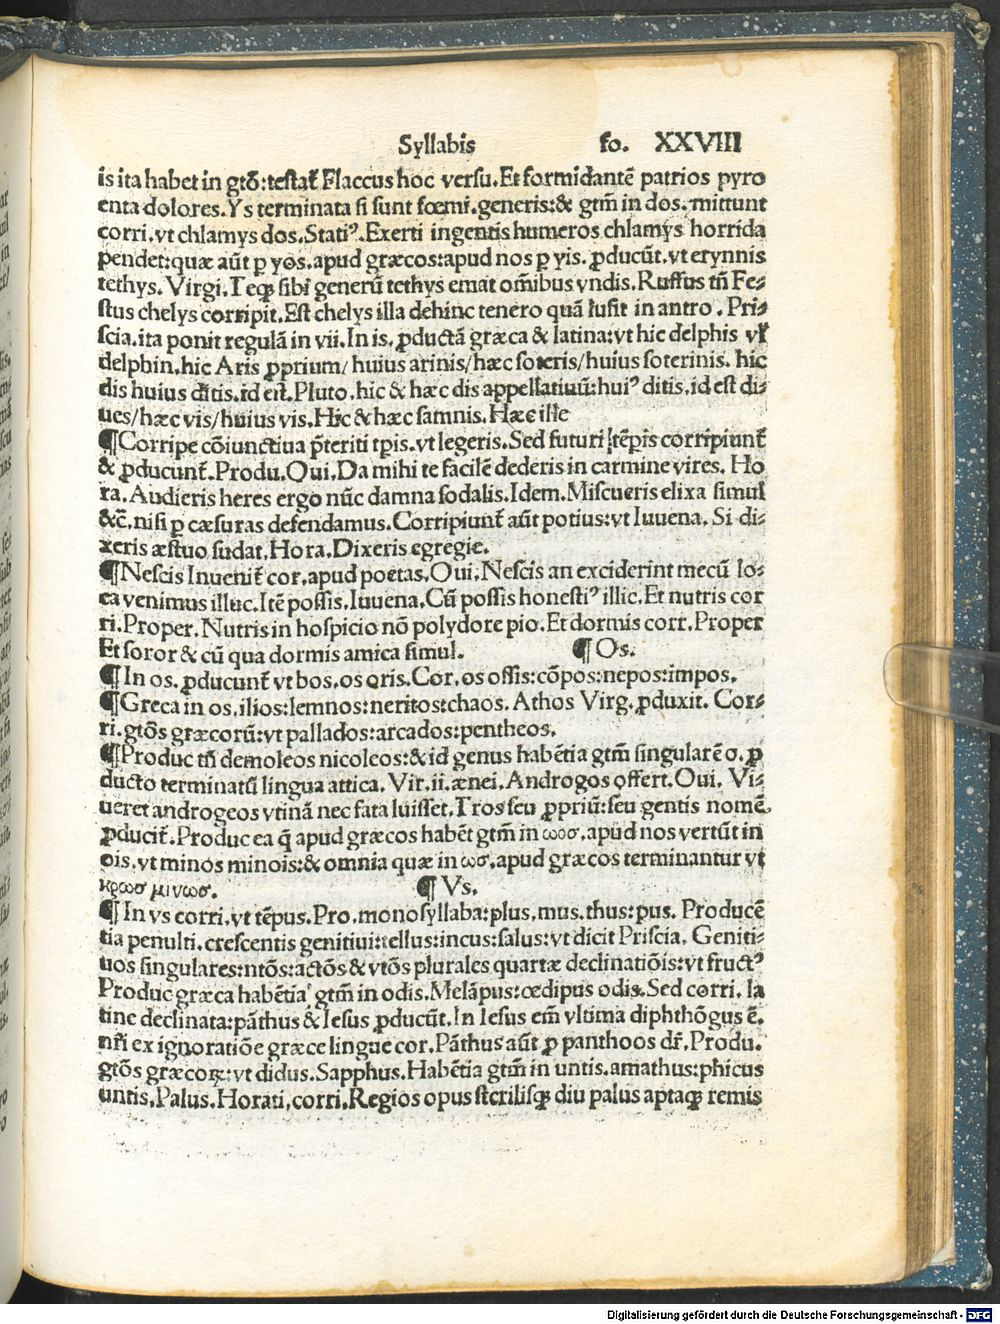 Syllabis fo. XXVIII
is ita habet in gtō:testat̃ Flaccus hoc versu.Et formidantē patrios pyro
enta dolores.Ys terminata si sunt fœmi.generis:& gtm̃ in dos.mittunt
corri.vt chlamys dos.Statiꝰ.Exerti ingentis humeros chlamys horrida
pendet:quæ aūt p yos.apud græcos:apud nos p yis.ꝓducūt.vt erynnis
tethys.Virgi.Teqꝫ sibi generū tethys emat om̃ibus vndis.Ruffus tñ Fe⸗
stus chelys corripit.Est chelys illa dehinc tenero quā lusit in antro.Pri⸗
scia.ita ponit regulā in vii.In is.ꝓductā græca & latina:vt hic delphis vl̃
delphin.hic Aris ꝓprium/huius arinis/hæc soteris/huius soterinis.hic
dis huius ditis.id est.Pluto.hic & hæc dis appellatiuū:huiꝰ ditis.id est di⸗
ues/hæc vis/huius vis.Hic & hæc samnis.Hæc ille
¶Corripe cōiunctiua p̃teriti tp̃is.vt legeris.Sed futuri tēp̃is corripiunt̃
& ꝓducunt̃.Produ.Oui.Da mihi te facilē dederis in carmine vires.Ho
ra.Audieris heres ergo nūc damna sodalis.Idem.Miscueris elixa simul
&c̃.nisi p cæsuras defendamus.Corripiunt̃ aūt potius:vt Iuuena.Si di⸗
xeris æstuo sudat.Hora.Dixeris egregie.
¶Nescis Inuenit̃ cor.apud poetas.Oui.Nescis an exciderint mecū lo⸗
ca venimus illuc.Itē possis.Iuuena.Cū possis honestiꝰ illic.Et nutris cor
ri.Proper.Nutris in hospicio nō polydore pio.Et dormis corr.Proper
Et soror & cū qua dormis amica simul. ¶Os.
¶In os.ꝓducunt̃ vt bos.os oris.Cor.os ossis:cōpos:nepos:impos.
¶Greca in os.ilios:lemnos:neritos:chaos.Athos Virg.ꝓduxit.Cor⸗
ri.gtōs græcorū:vt pallados:arcados:pentheos.
¶Produc tñ demoleos nicoleos:& id genus habētia gtm̃ singularē o.ꝓ
ducto terminatū lingua attica.Vir.ii.ænei.Androgos offert.Oui.Vi⸗
ueret androgeos vtinā nec fata luisset.Tros seu ꝓpriū:seu gentis nomē.
ꝓducit̃.Produc ea q̃ apud græcos habēt gtm̃ in ωοσ.apud nos vertūt in
ois.vt minos minois:& omnia quæ in ωσ.apud græcos terminantur vt
κρωσ μινωσ. ¶Vs.
¶In vs corri.vt tēpus.Pro.monosyllaba:plus.mus.thus:pus.Producē
tia penulti.crescentis genitiui:tellus:incus:salus:vt dicit Priscia.Geniti⸗
uos singulares:ntōs:actōs & vtōs plurales quartæ declinatiōis:vt fructꝰ
Produc græca habētia gtm̃ in odis.Melāpus:œdipus odis.Sed corri.la
tine declinata:pāthus & Iesus ꝓducūt.In Iesus em̃ vltima diphthōgus ē.
nr̃i ex ignoratiōe græce lingue cor.Pāthus aūt ꝓ panthoos dr̃.Produ.
gtōs græcoꝝ:vt didus.Sapphus.Habētia gtm̃ in untis.amathus:phicus
untis.Palus.Horati.corri.Regios opus sterilisqꝫ diu palus aptaqꝫ remis
Digitalisierung gefördert durch die Deutsche Forschungsgemeinschaft - DFG